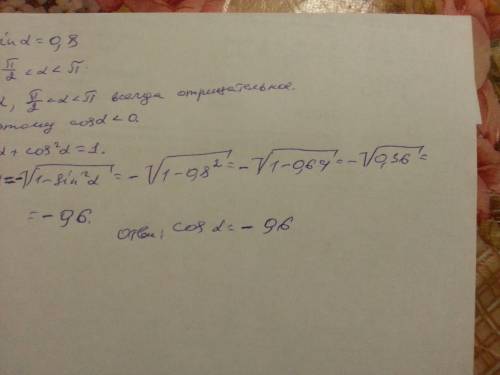 sin α = 0,8
π/2 < α < π
α, π/2 < α < π всегда отрицательное.
этому cos α < 0.
α + cos²α = 1.
= -√(1 - sin²α) = -√(1 - 0,8²) = -√(1 - 0,64) = -√(0,36) =
= -0,6.
Ответ: cos α = -0,6